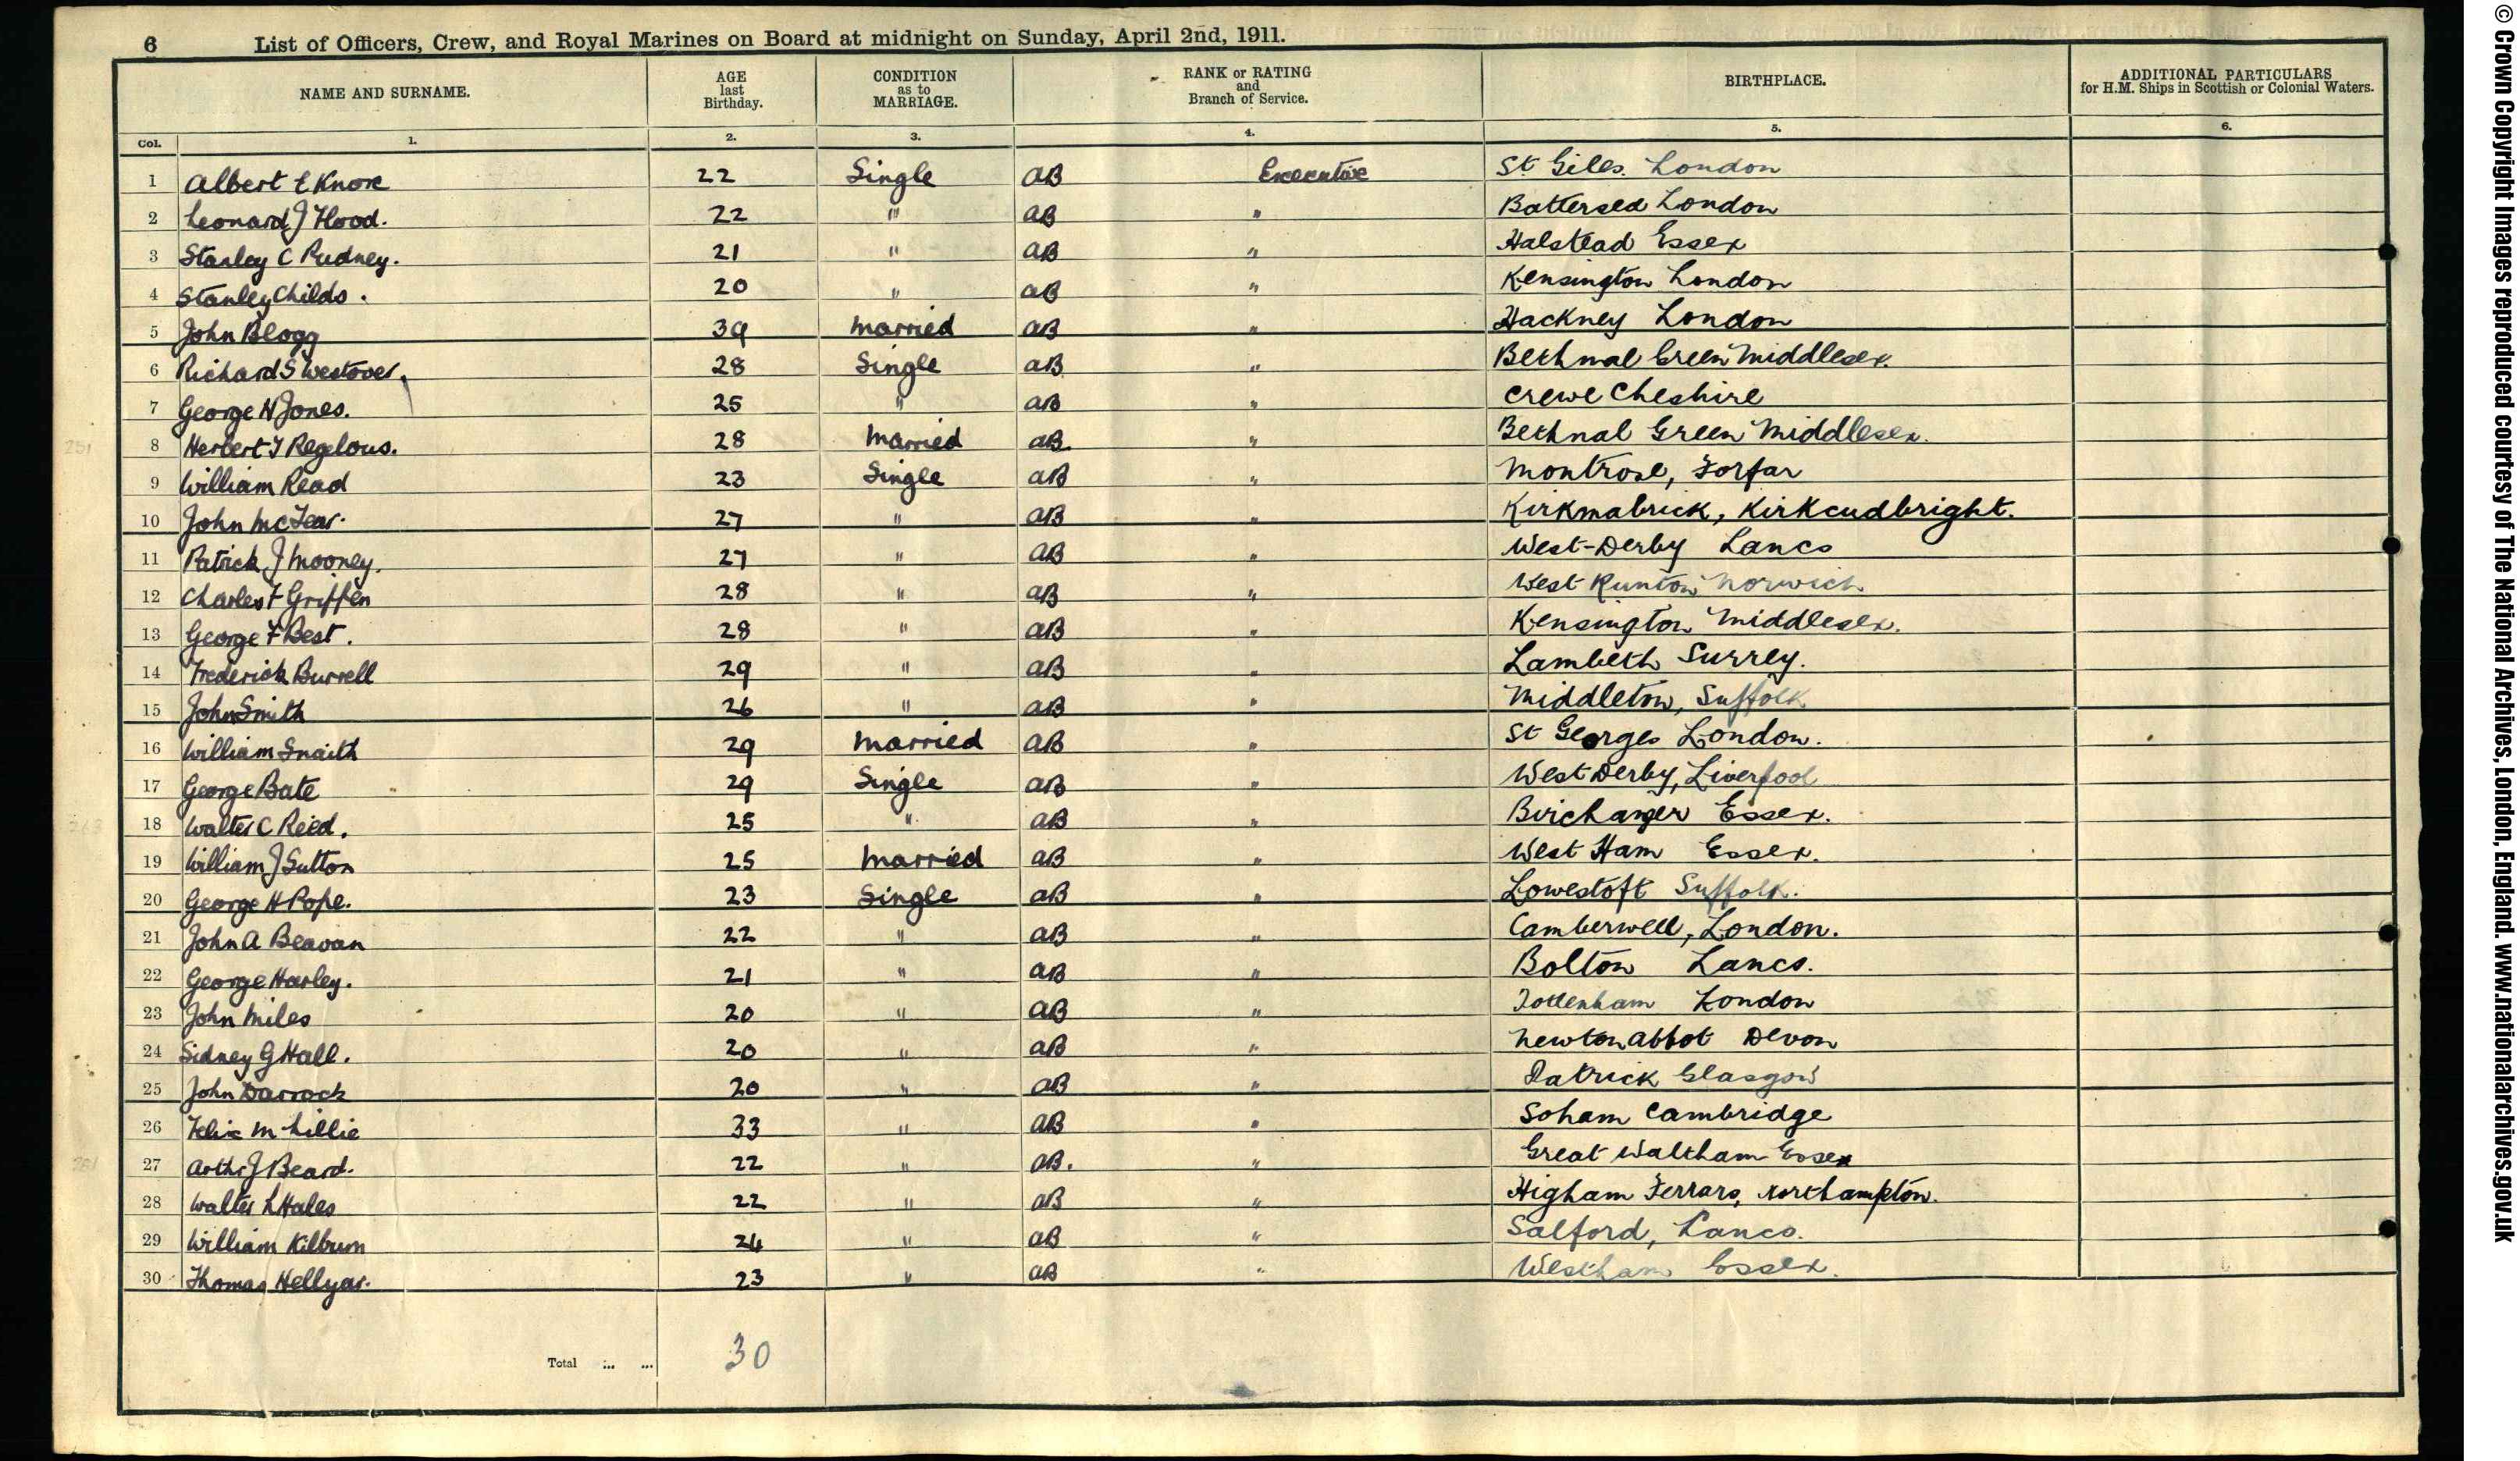 6 List of Officers, Crew, and Royal Marines on Board at midnight on Sunday, April 2nd, 1911.
NAME AND SURNAME. AGE last Birthday. CONDITION as to MARRIAGE. RANK or RATING and Branch of Service. BIRTHPLACE. ADDITIONAL PARTICULARS for H.M. Ships in Scottish or Colonial Waters.
Col. 1. 2. 3. 4. 5. 6.
1 Albert E Knox 22 Single AB Executive St Giles. London
2 Leonard J Hood. 22 " AB " Battersea London
3 Stanley C Rudney. 21 " AB " Halstead Essex
4 Stanley Childs. 20 " AB " Kensington London
5 John Blogg 39 Married AB " Hackney London
6 Richard S Westover. 28 Single AB " Bethnal Green Middlesex.
7 George H Jones. 25 " AB " Crewe Cheshire
8 Herbert J Regelous. 28 Married AB. " Bethnal Green Middlesex.
9 William Read 23 Single AB " Montrose, Forfar
10 John McTear. 27 " AB " Kirkmabrick, Kirkcudbright.
11 Patrick J Mooney. 27 " AB " West-Derby Lancs
12 Charles F Griffen 28 " AB " West Runton Norwich
13 George F Best. 28 " AB " Kensington Middlesex.
14 Frederick Burrell 29 " AB " Lambeth Surrey.
15 John Smith 26 " AB " Middleton, Suffolk
16 William Snaith 29 Married AB " St Georges London.
17 George Bate 29 Single AB " West Derby, Liverpool
18 Walter C Reed. 25 " AB " Birchanger Essex.
19 William J Sutton 25 Married AB " West Ham Essex.
20 George H Pope. 23 Single AB " Lowestoft Suffolk.
21 John A Beavan 22 " AB " Camberwell, London.
22 George Harley. 21 " AB " Bolton Lancs.
23 John Miles 20 " AB " Tottenham London
24 Sidney G Hall. 20 " AB " Newton Abbot Devon
25 John Darroch 20 " AB " Patrick Glasgow
26 Felix M Lillie 33 " AB " Soham Cambridge
27 Arthr J Beard. 22 " AB. " Great Waltham Essex
28 Walter L Hales 22 " AB " Higham Ferrars, Northampton.
29 William Kilburn 24 " AB " Salford, Lancs.
30 Thomas Hellyar. 23 " AB " Westham Essex.
Total ... ... 30
© Crown Copyright Images reproduced courtesy of The National Archives, London, England. www.nationalarchives.gov.uk